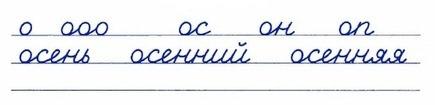 о ооо ос он оп
осень осенний осенняя